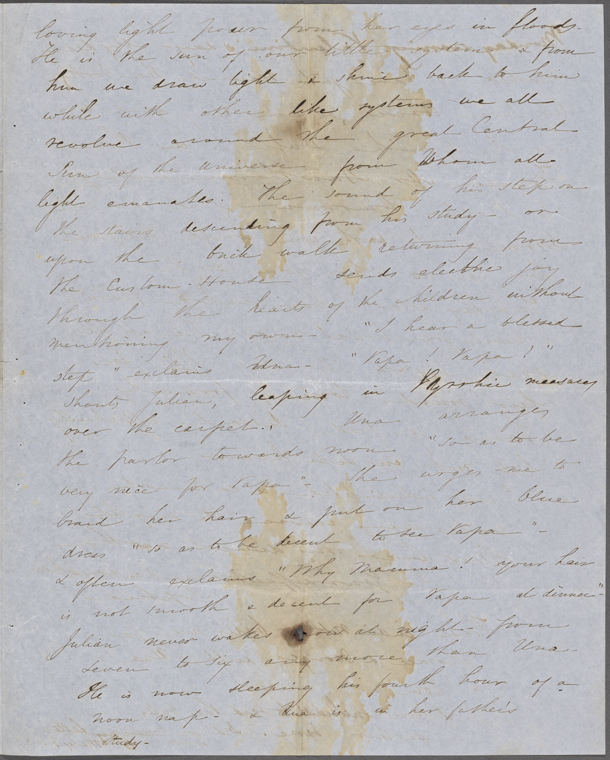 loving light pour from her eyes in floods.
He is the sun of our little system & from
him we draw light & shine back to him
while with other like systems we all
revolve around the great Central
Sun of the Universe from Whom all
light emanates. The sound of his step on
the stairs descending from his study - or
upon the back walk returning from
the Custom-House sends electric joy
through the hearts of the children without
mentioning my own - "I hear a blessed
step" exclaims Una - "Papa! Papa!"
shouts Julian, leaping in Pyrrhic measures
over the carpet. Una arranges
the parlor towards noon "so as to be
very nice for Papa" - She urges me to
braid her hair & put on her blue
dress "so as to be decent to see Papa" -
& often exclaims "Why Mamma! your hair
is not smooth & decent for Papa at dinner"-
Julian never wakes now at night - from
seven to six any more than Una -
He is now sleeping his fourth hour of a
noon nap - & Una is in her father's
study -